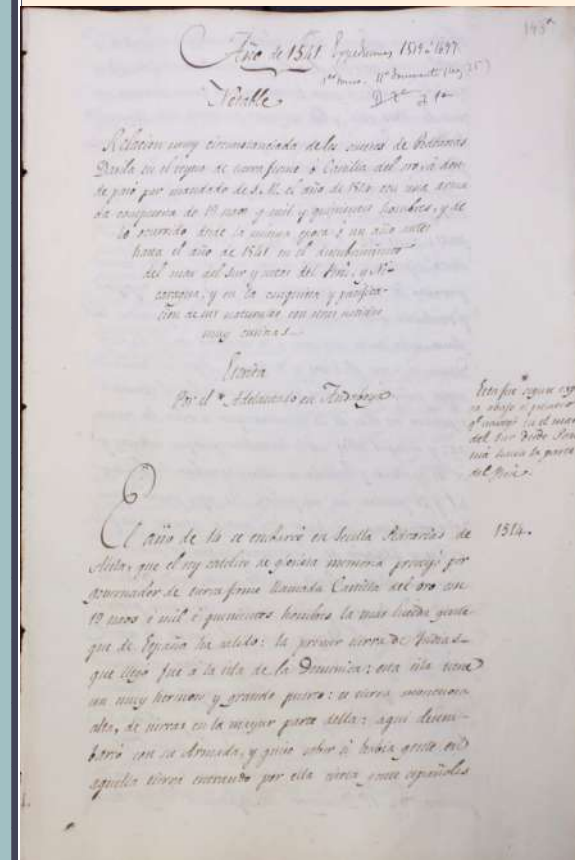 Año de 1541 Expediciones 1519 á 1697
Notable
Relacion muy circunstanciada de los sucesos de Pedrarias
Davila en el reyno de tierra firme ó Castilla del oro, á don-
de pasó por mandado de S.M. el año de 1514 con una arma
da compuesta de 19 naos y mil y quinientos hombres, y de
lo ocurrido desde la misma epoca ó un año antes
hasta el año de 1541 en el descubrimiento
del mar del Sur y costas del Perú, y Ni-
caragua, y en la conquista y pacifica-
cion de sus naturales con otras noticias
muy curiosas
Escrita
Por el * Adelantado en Andagoya
Este fue * segun
abajo el primero
qe navegó en el mar
del Sur desde Pana
má hacia la parte
del Perú.
El año de 14 se embarcó en Sevilla Pedrarias de
Avila, que el rey catolico de gloriosa memoria proveyó por
governador de tierra firme llamada Castilla del oro con
19 naos é mil é quinientos hombres la mas lucida gente
que de España ha salido: la primer tierra de Indias
que llegó fue á la isla de la Dominica: esta isla tiene
un muy hermoso y grande puerto: es tierra
alta, de sierras en la mayor parte della: aqui desem-
barcó con su Armada, y quiso saber si habia gente en
aquella tierra entrando por ella cierta gente españoles
1514.